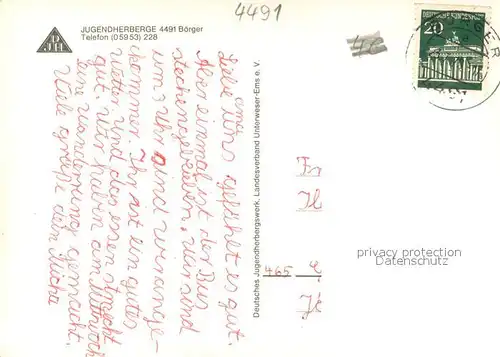 4491
JUGENDHERBERGE 4491 Börger
Telefon (05953) 228
DEUTSCHE BUNDESPOST
20
Liebe uns gefällt es gut.
Aber einmal ist der Bus
stecken geblieben. wir sind
um 3 Uhr und wir ange-
kommen. Ihr ast ein gutes
Wetter und das essen smeckt
gut. Wir haben am Mittwoch
eine wanderung gemacht.
Viele grüße dein Micha
Deutsches Jugendherbergswerk, Landesverband Unterweser-Ems e. V.
Fr
H
465
privacy protection
Datenschutz